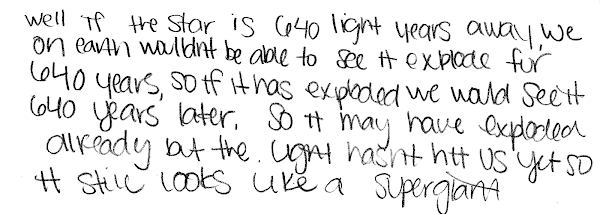 well if the star is 640 light years away, we
on earth wouldnt be able to see it explode for
640 years, so if it has exploded we would see it
640 years later. So it may have exploded
already but the. light hasnt hit us yet so
it still looks like a supergiant